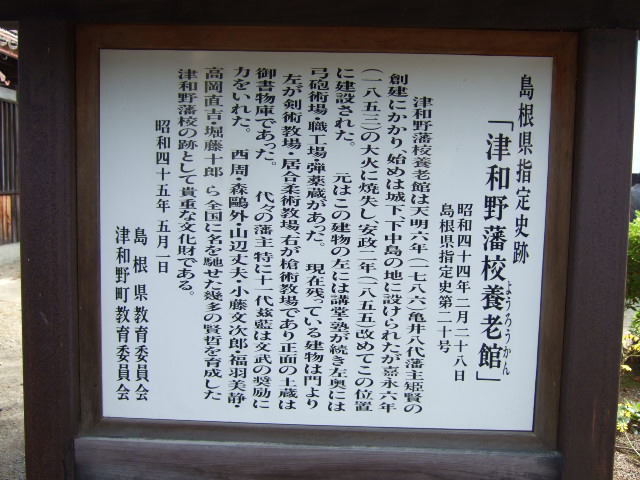 島根県指定史跡
「津和野藩校養老館」
ようろうかん
昭和四十四年二月二十八日
島根県指定史第二十号
津和野藩校養老館は天明六年(一七八六)亀井八代藩主矩賢の
創建にかかり、始めは城下、下中島の地に設けられたが嘉永六年
(一八五三)の大火に焼失し、安政二年(一八五五)改めてこの位置
に建設された。 元はこの建物の左には講堂・塾が続き左奥には
弓砲術場・職工場・弾薬蔵があった。 現在残っている建物は門より
左が剣術教場・居合柔術教場、右が槍術教場であり正面の土蔵は
御書物庫であった。 代々の藩主特に十一代玆監は文武の奨励に
力をいれた。 西周・森鷗外・山辺丈夫・小藤文次郎・福羽美静・
高岡直吉・堀藤十郎 ら全国に名を馳せた幾多の賢哲を育成した
津和野藩校の跡として貴重な文化財である。
昭和四十五年 五月一日
島根県教育委員会
津和野町教育委員会